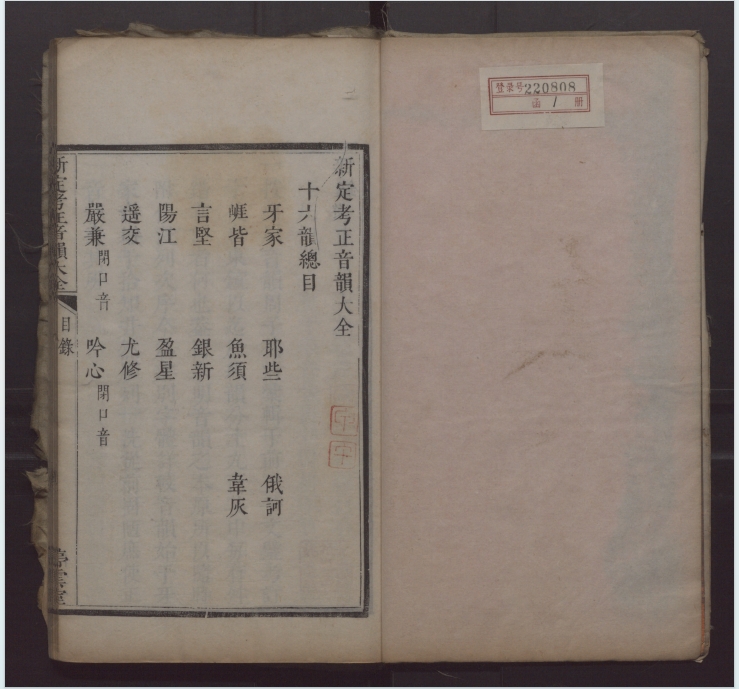 登录号220808
函 1 册
新定考正音韻大全
十六韻總目
牙家 耶些 俄訶
崕皆 魚須 韋灰
言堅 銀新
陽江 盈星
遥交 尤修
嚴兼閉口音 吟心閉口音
新定考正音韻大全 目錄